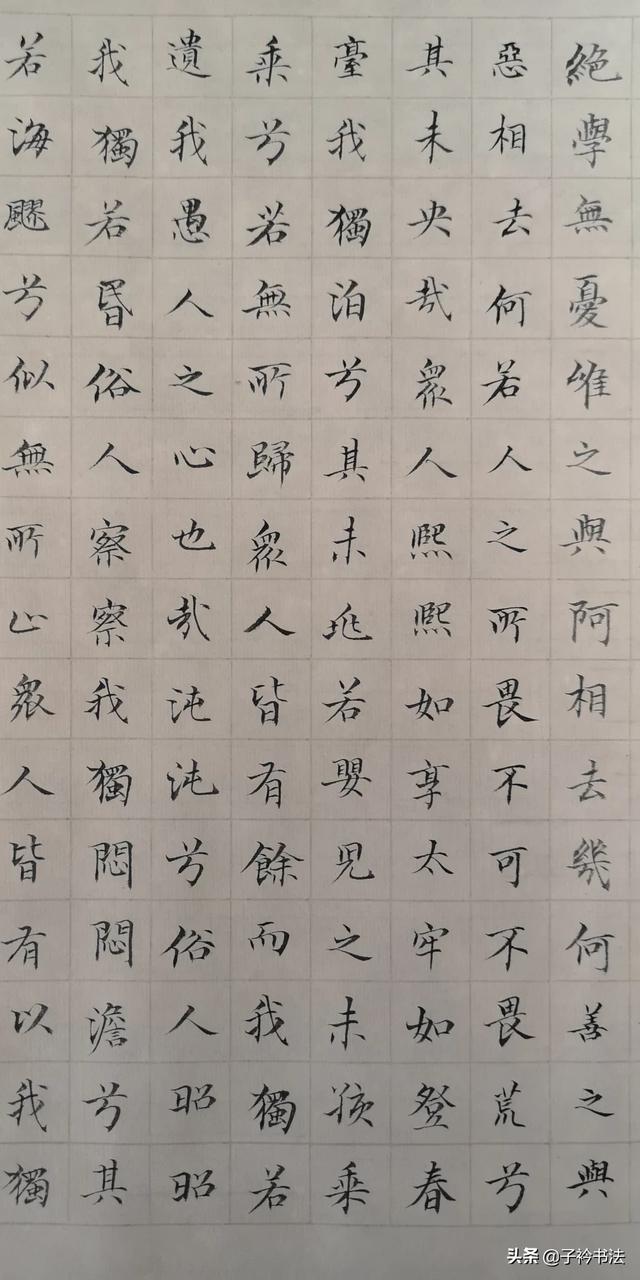 絕學無憂維之與阿相去幾何善之與
惡相去何若人之所畏不可不畏荒兮
其未央哉眾人熙熙如享太牢如登春
臺我獨泊兮其未兆若嬰兒之未孩乘
乘兮若無所歸眾人皆有餘而我獨若
遺我愚人之心也哉沌沌兮俗人昭昭
我獨若昬俗人察察我獨悶悶澹兮其
若海飂兮似無所止眾人皆有以我獨
头条 @子衿书法